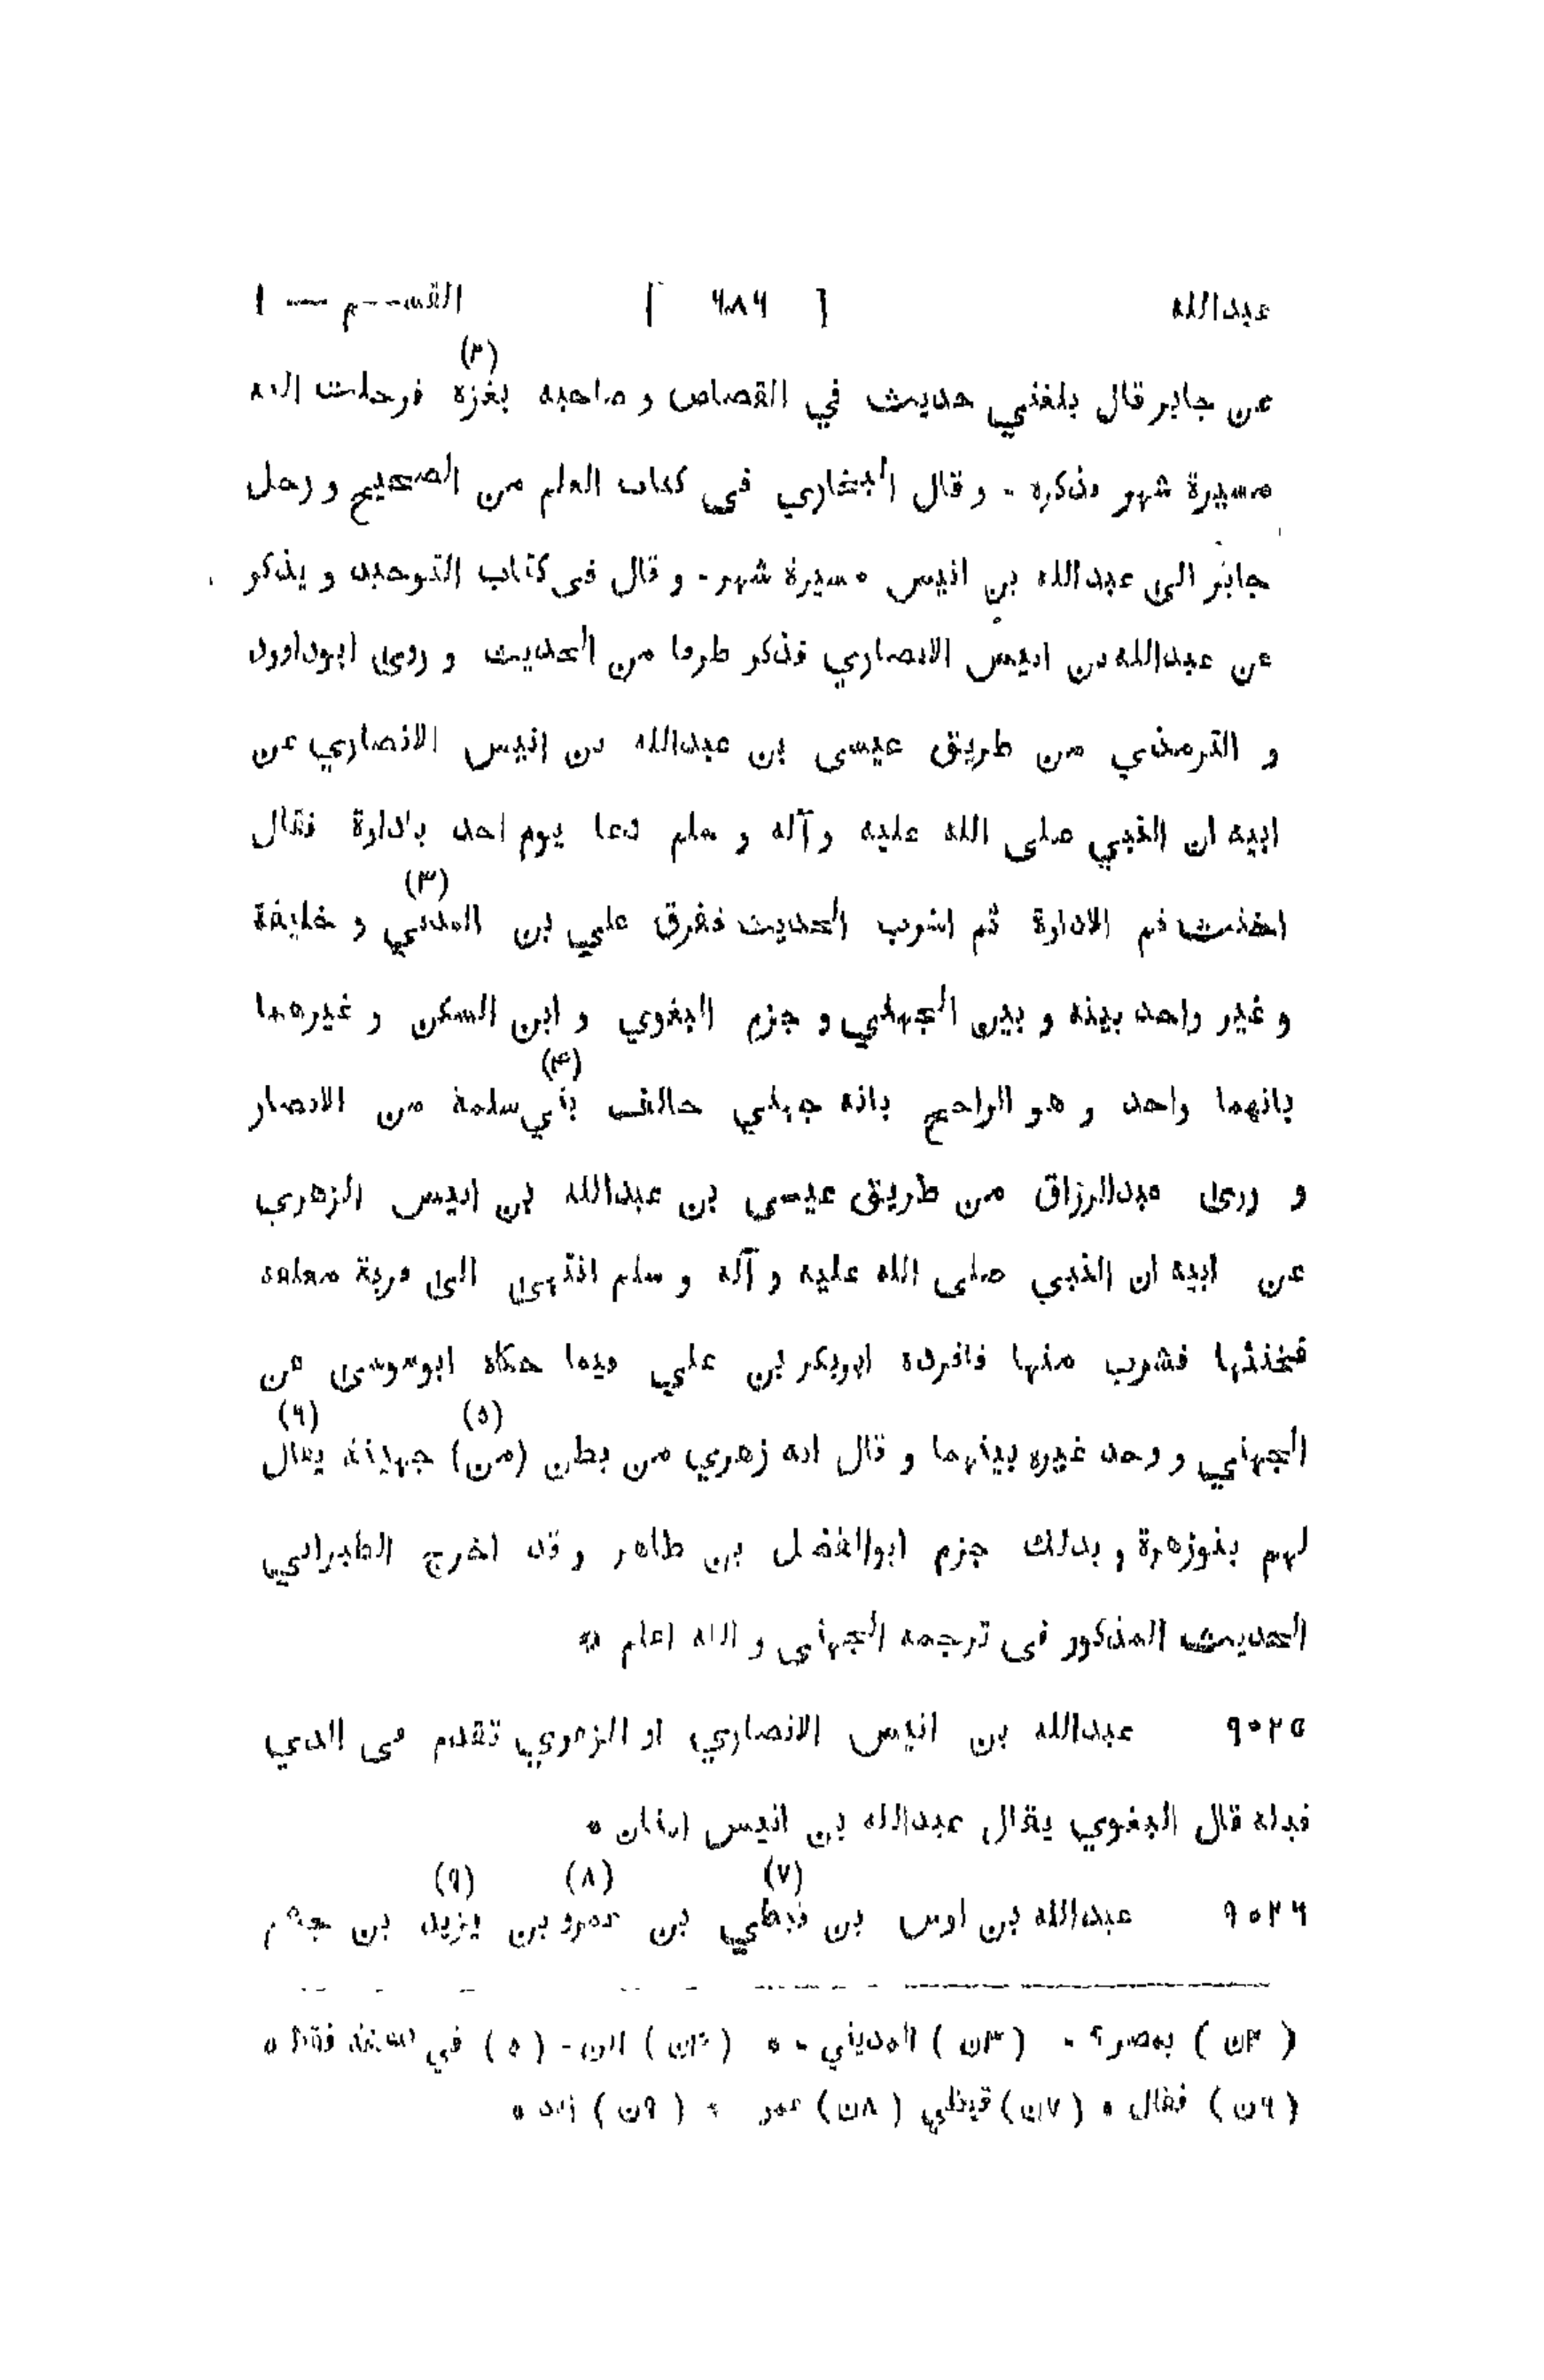 عبدالله [ ٦٨٦ ] القسم — ١
(٢)
عن جابر قال بلغني حديث في القصاص و صاحبه بغزة فرحلت اليه
مسيرة شهر فذكره - و قال البخاري فى كتاب العلم من الصحيح و رحل
جابر الى عبدالله بن انيس مسيرة شهر - و قال فى كتاب التوحيد و يذكر
عن عبدالله بن انيس الانصاري فذكر طرفا من الحديث و روى ابوداوود
و الترمذي من طريق عيسى بن عبدالله بن انيس الانصاري عن
ابيه ان النبي صلى الله عليه و آله و سلم دعا يوم احد باداوة فقال
(٣)
اخنث فم الاداوة ثم اشرب الحديث ففرق علي بن المدني و خليفة
و غير واحد بينه و بين الجهني و جزم البغوي و ابن السكن و غيرهما
(٤)
بانهما واحد و هو الراجح بانه جهني حالف بني سلمة من الانصار
و روى عبدالرزاق من طريق عيسى بن عبدالله بن انيس الزهري
عن ابيه ان النبي صلى الله عليه و آله و سلم انتهى الى قربة معلقة
فخنثها فشرب منها فافرده ابوبكر بن علي فيما حكاه ابوموسى عن
(٥) (٦)
الجهني و وحد غيره بينهما و قال انه زهري من بطن (من) جهينة يقال
لهم بنوزهرة و بذلك جزم ابوالفضل بن طاهر و قد اخرج الطبراني
الحديث المذكور فى ترجمة الجهنى و الله اعلم *
٩٠٢٥ عبدالله بن انيس الانصاري او الزهري تقدم فى الذي
قبله قال البغوي يقال عبدالله بن انيس اثنان *
(٧) (٨) (٩)
٩٠٢٦ عبدالله بن اوس بن قبطي بن عمرو بن يزيد بن جشم
( ٢ن ) بمصر ؟ - ( ٣ن ) المديني - * ( ٤ن ) ابن - ( ٥ ) في نسخة فقط *
( ٦ن ) فقال * ( ٧ن ) قيظي ( ٨ن ) عمر * ( ٩ن ) زيد *